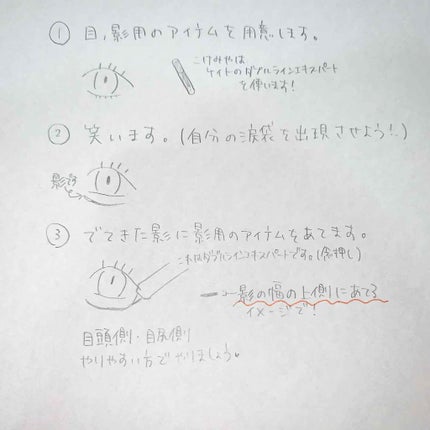 ① 目、影用のアイテムを用意します。
こけみやは
ケイトのダブルラインエキスパート
を使います!
② 笑います。(自分の涙袋を出現させよう!)
影
③ でてきた影に影用のアイテムをあてます。
これはダブルラインエキスパートです。(念押し)
影の幅の下側にあてる
イメージで!
目頭側・目尻側
やりやすい方でやりましょう。